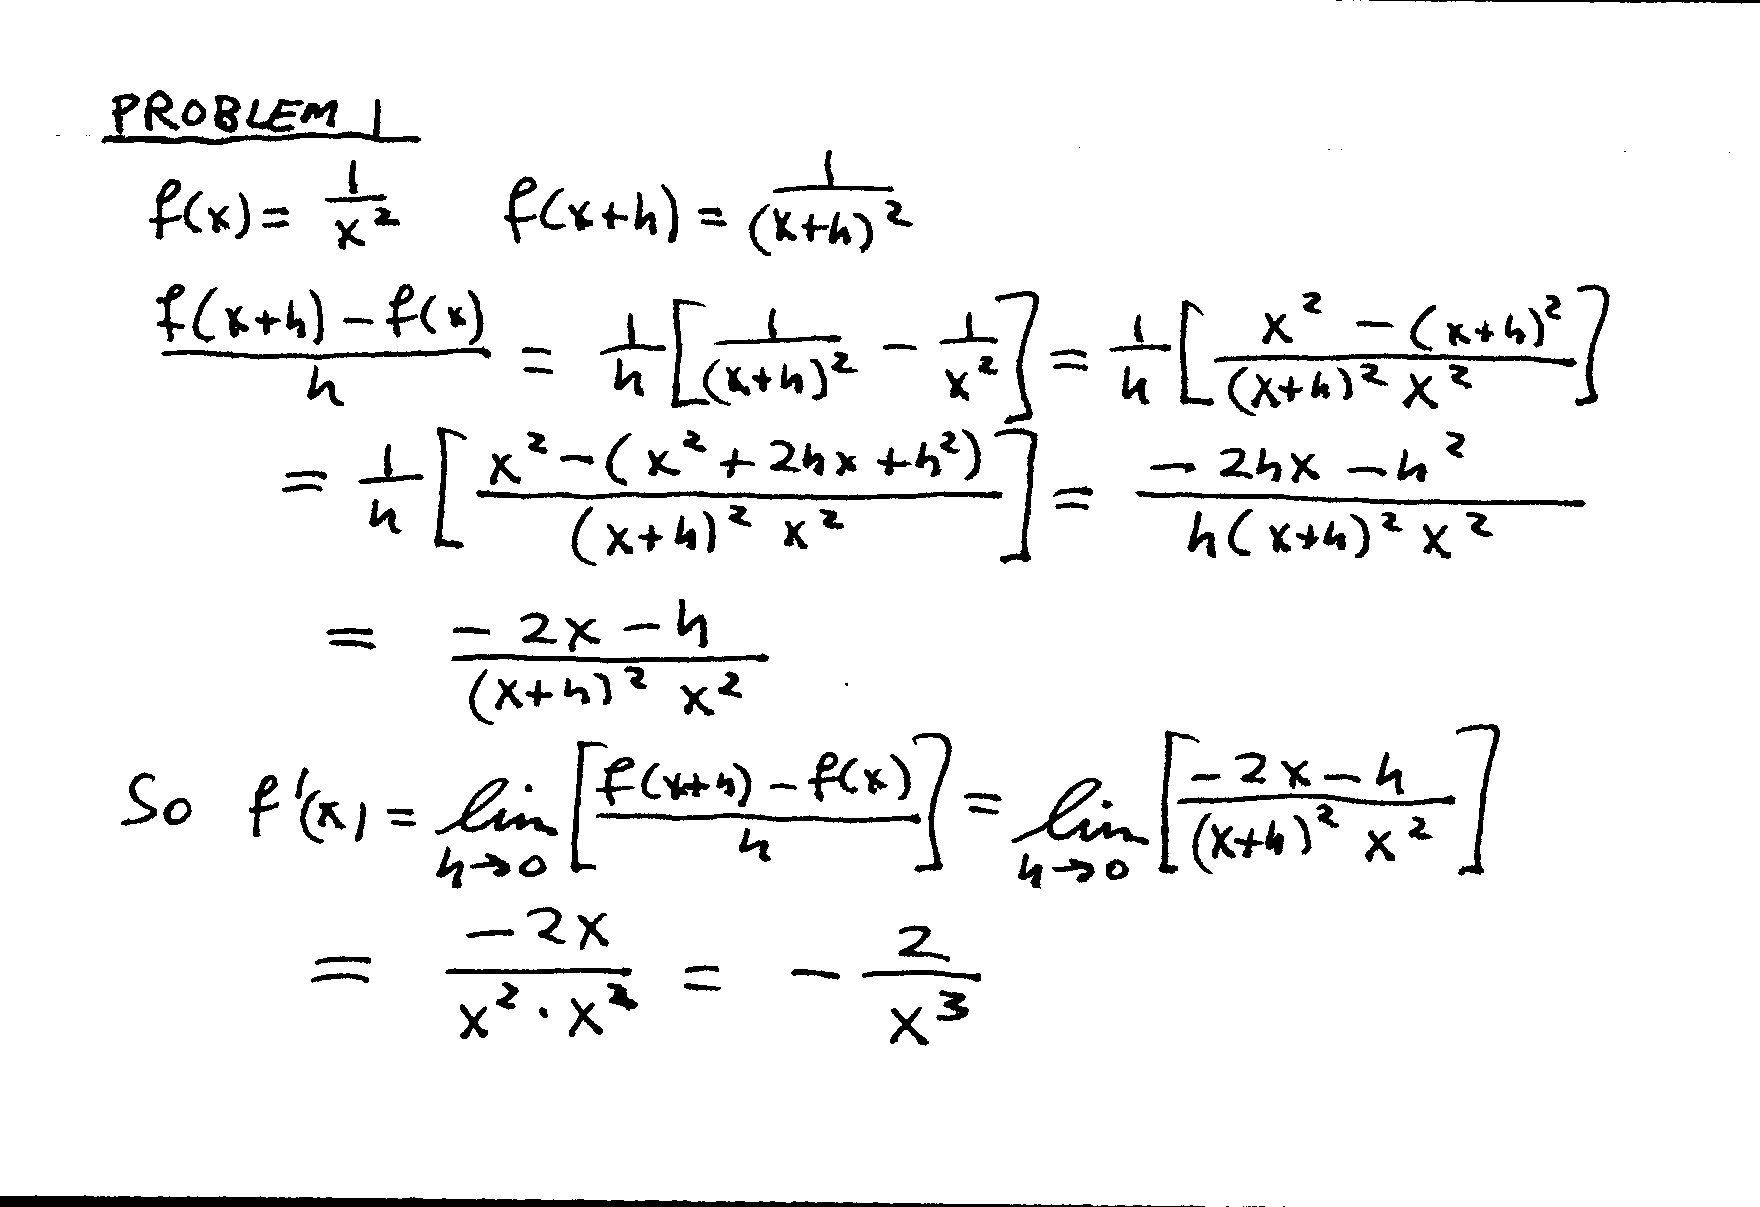 PROBLEM 1
f(x) = 1/x² f(x+h) = 1/(x+h)²
(f(x+h) - f(x))/h = 1/h [1/(x+h)² - 1/x²] = 1/h [(x² - (x+h)²)/((x+h)² x²)]
= 1/h [(x² - (x² + 2hx + h²))/((x+h)² x²)] = (-2hx - h²)/(h(x+h)² x²)
= (-2x - h)/((x+h)² x²)
So f'(x) = lim h→0 [(f(x+h) - f(x))/h] = lim h→0 [(-2x - h)/((x+h)² x²)]
= -2x/(x² · x²) = - 2/x³